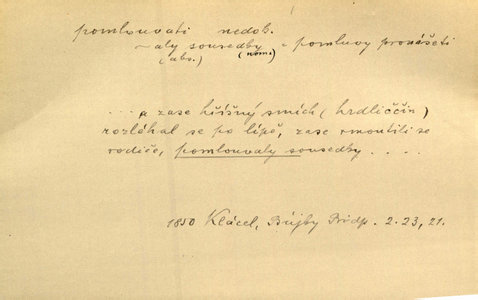 pomlouvati nedok.
~aly sousedky = pomluvy pronášeti
(abs.) (nom.)
... a zase hříšný smích (hrdliččin)
rozléhal se po lípě, zase rmoutili se
rodiče, pomlouvaly sousedky ....
1850 Klácel, Bájky Bidp. 2.23, 21.